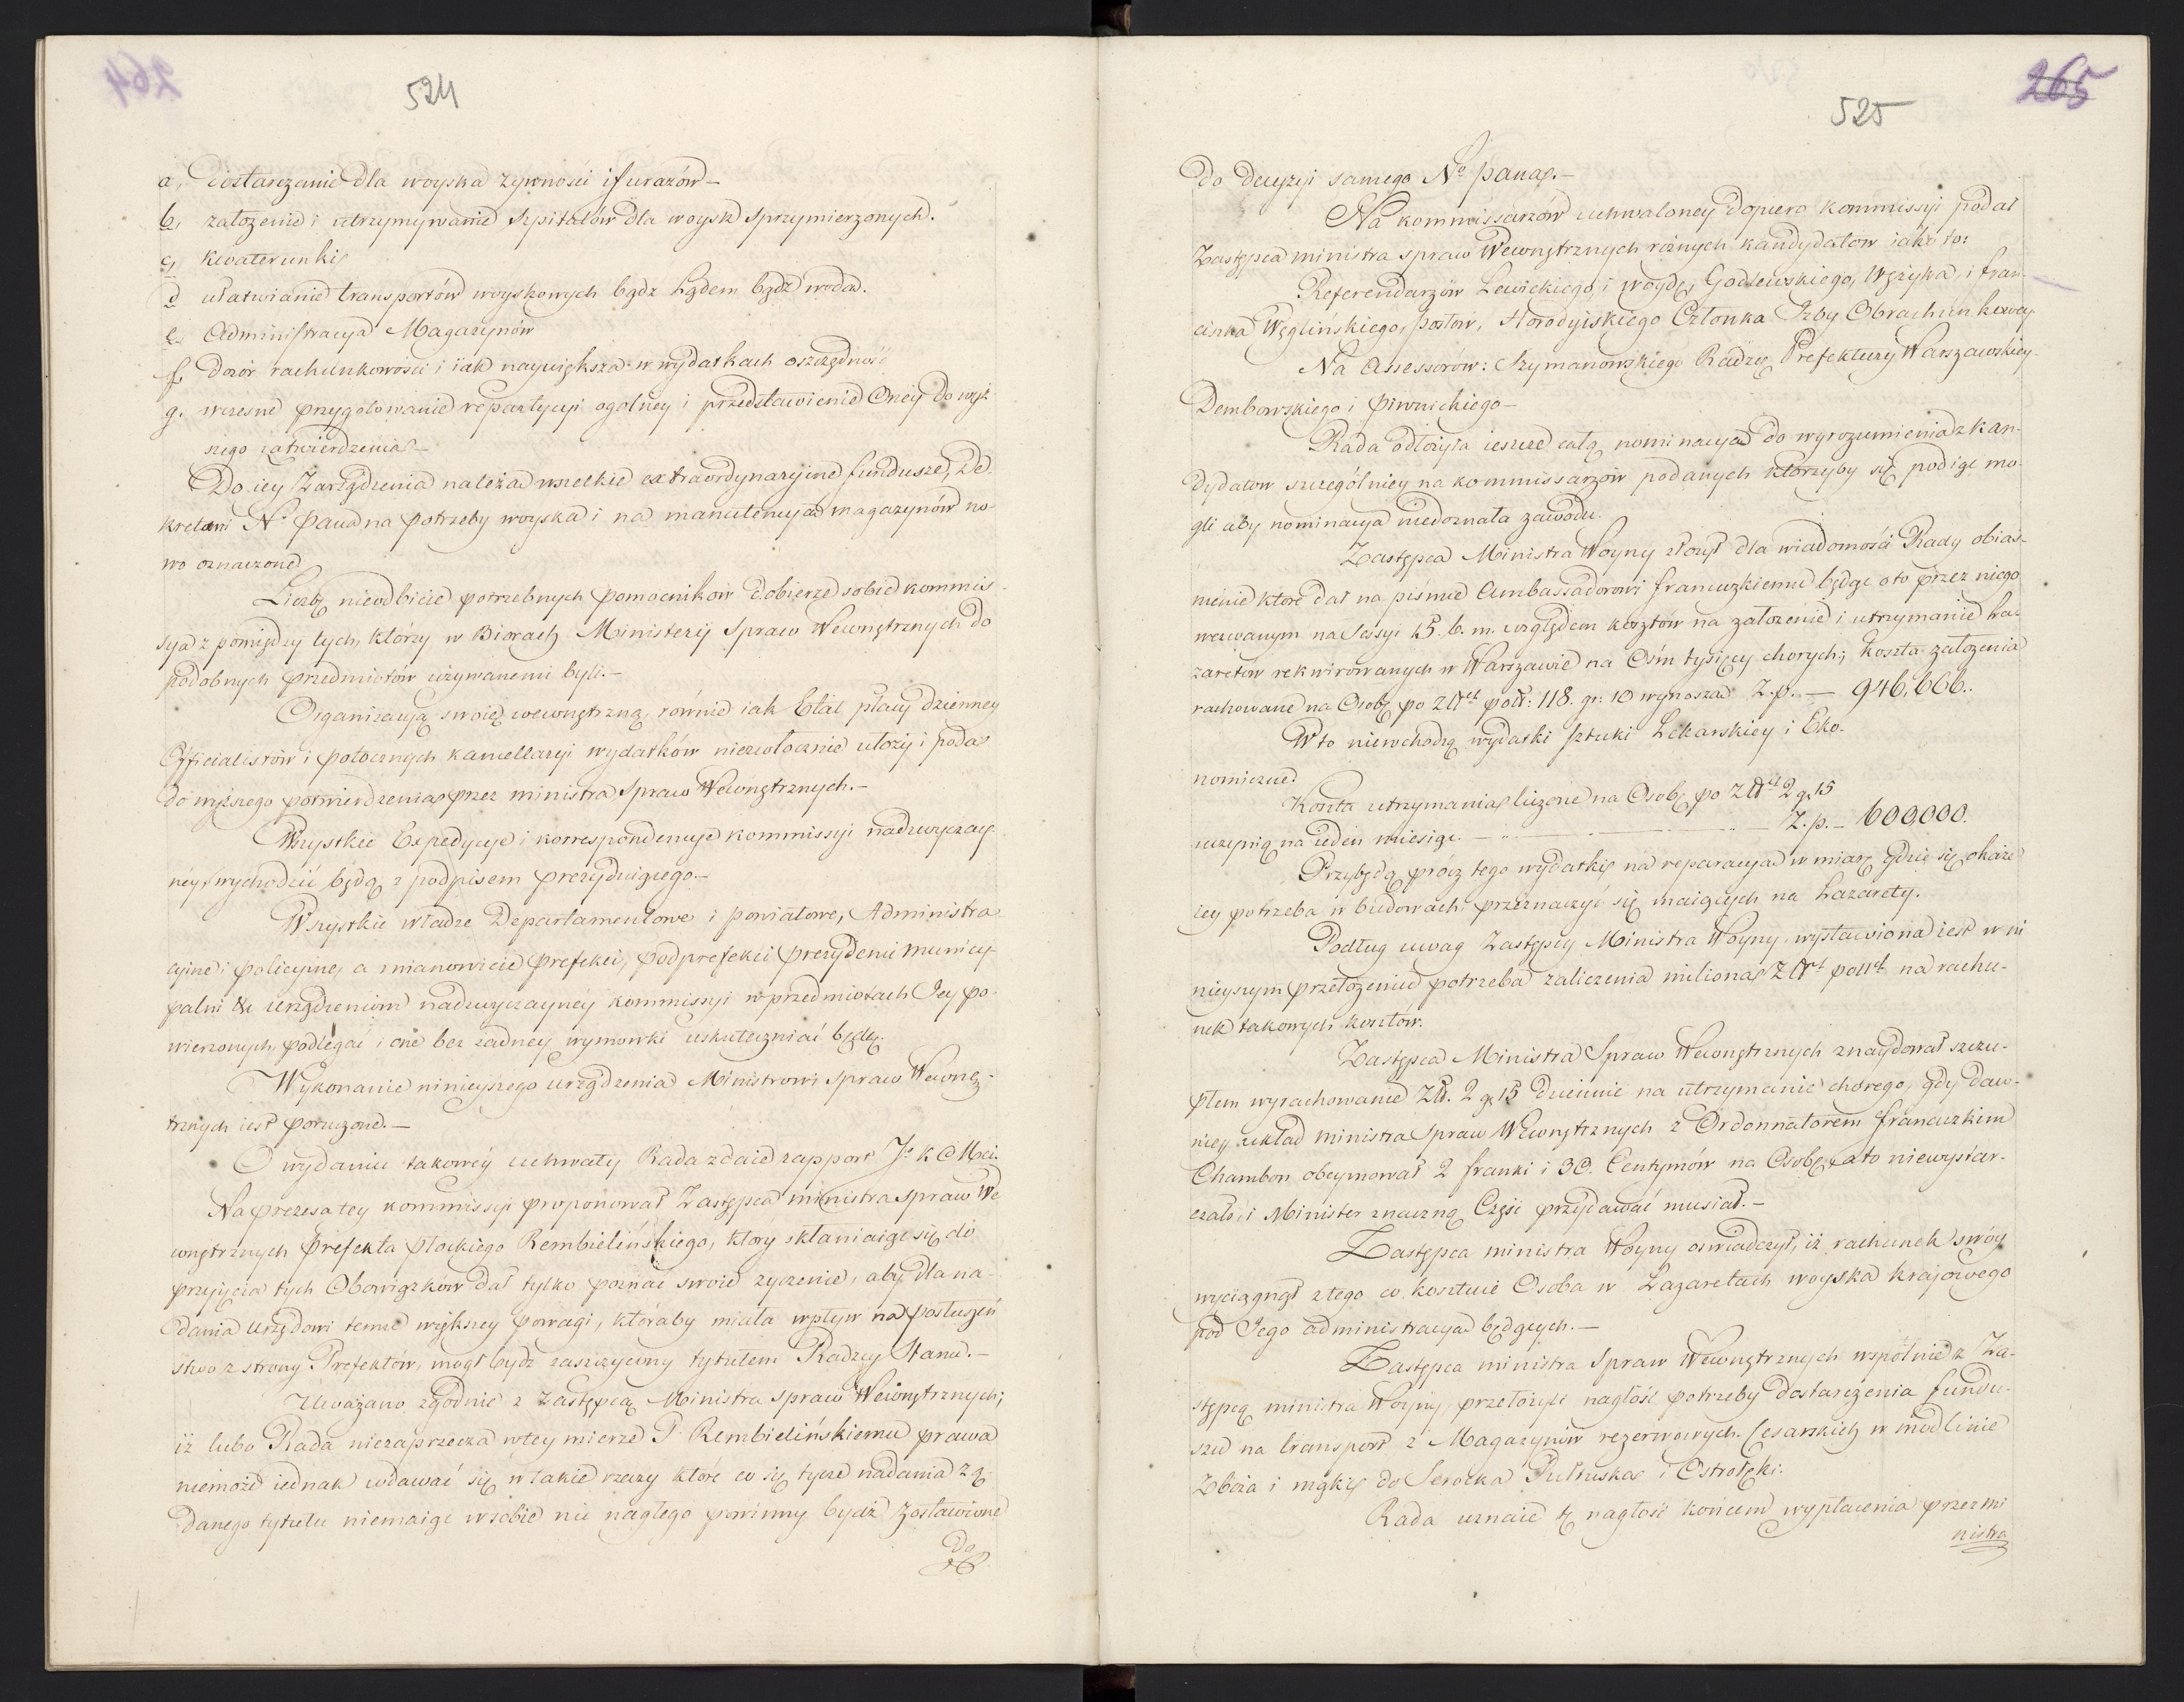 264
524
a, dostarczanie dla woyska żywności i furażów —
b, założenie i utrzymywanie Szpitalów dla woysk Sprzymierzonych.
c, kwaterunki
d ułatwianie transportów woyskowych bądz Lądem bądź wodą.
e. Administracya Magazynów
f, dozór rachunkowości i iak naywiększa w wydatkach oszczędność
g. wczesne przygotowanie repartycyi ogolney i przedstawienie Oney do wyż-
szego zatwierdzenia —
Do iey Zarządzenia należą wszelkie extraordynaryine fundusze, De-
kretami N. Pana na potrzeby woyska i na manutencyą magazynów no-
wo oznaczone
Liczbę nieodbicie potrzebnych pomocników dobierze sobie kommis-
sya z pomiędzy tych, którzy w Biorach Ministerij Spraw Wewnętrznych do
podobnych przedmiotów używanemi byli. —
Organizacyą swoię wewnętrzną, równie iak Etat płacy dzienney
Officialistów i potocznych kancellaryi wydatków niezwłocznie ułoży i poda
do wyższego potwierdzenia przez ministra Spraw Wewnętrznych. —
Wszystkie Expedycye i korrespondencye kommissyi nadzwyczay-
ney, wychodzić będą z podpisem prezyduiącego. —
Wszystkie władze Departamentowe i powiatowe, Administra-
cyine i policyine, a mianowicie prefekci, podprefekci prezydenci municy-
palni &c urządzeniom nadzwyczayney kommissyi w przedmiotach Jey po-
wierzonych, podlegać i one bez żadney wymowki uskuteczniać będą.
Wykonanie ninieyszego urządzenia Ministrowi Spraw Wewnę-
trznych iest poruczone. —
O wydaniu takowey uchwały Rada zdaie rapport Jo K C Mci.
Na prezesa tey kommissyi proponował Zastępca ministra spraw We-
wnętrznych Prefekta Płockiego Rembielińskiego, który skłaniaiąc się do
przyięcia tych Obowiązków dał tylko poznać swoie życzenie, aby dla na-
dania Urzędowi temu większey powagi, któraby miała wpływ na posłuszeń-
stwo z strony Prefektów, mógł bydz zaszczycony tytułem Radzcy Stanu. —
Uważano zgodnie z Zastępcą Ministra Spraw Wewnętrznych;
iż lubo Rada niezaprzecza wtey mierze P. Rembielińskiemu prawa
niemoże iednak wdawać się w takie rzeczy które co się tycze nadania żą-
danego tytułu niemaiąc w sobie nic nagłego powinny bydź zostawione
do
265
525
do decyzyi samego No Pana. —
Na kommissarzów uchwaloney dopiero kommissyi podał
Zastępca ministra spraw Wewnętrznych różnych kandydatów iako to:
Referendarzów Lewickiego, i Woydę, Godlewskiego, Wężyka, i fran-
ciszka Węglińskiego, posłów, Horodyiskiego Członka Izby Obrachunkowey
Na Assessorów: Szymanowskiego Radzcę Prefektury Warszawskiey
Dembowskiego i Piwnickiego —
Rada odłożyła ieszcze całą nominacyą do wyrozumienia z kan-
dydatów szczególniey na kommissarzów podanych którzyby się podiąć mo-
gli aby nominacya niedoznała zawodu.
Zastępca Ministra Woyny złożył dla wiadomości Rady obiaś-
nienie które dał na piśmie Ambassadorowi francuzkiemu będąc oto przez niego
wezwanym na Sessyi 15. b. m. względem kosztów na założenie i utrzymanie La-
zaretów rekwirowanych w Warszawie na Osm tysięcy chorych; koszta założenia
rachowane na Osobę po złtch pol: 118. gr: 10 wynoszą Z.p. — 946,666..
W to niewchodzą wydatki sztuki Lekarskiey i Eko-
nomiczne.
Koszta utrzymania liczone na Osobę po złtch 2 g. 15
uczynią na ieden miesiąc. — Z.p. — 600,000.
Przybędą prócz tego wydatki na reparacyą w miarę gdzie się okaże
iey potrzeba w budowach przeznaczyć się maiących na Lazarety.
Podług uwag Zastępcy Ministra Woyny, wystawiona iest w ni-
nieyszym przełożeniu potrzeba zaliczenia miliona złtch polch na rachu-
nek takowych kosztów.
Zastępca Ministra Spraw Wewnętrznych znaydował szczu-
płem wyrachowanie Zł. 2 g 15 dziennie na utrzymanie chorego, gdy daw-
niey układ ministra Spraw Wewnętrznych z Ordonnatorem francuzkim
Chambon obeymował 2 franki i 30. Centymów na Osobę, a to niewystar-
czało, i Minister znaczną Część przydawać musiał. —
Zastępca ministra Woyny oświadczył, iż rachunek swóy
wyciągnął z tego co kosztuie Osoba w Lazaretach woyska krajowego
pod Jego administracyą będących. —
Zastępca ministra Spraw Wewnętrznych wspólnie z Za-
stępcą ministra Woyny, przełożyli nagłość potrzeby dostarczenia fundu-
szu na transport z Magazynów rezerwowych Cesarskich w modlinie
Zboża i mąki do Serocka Pułtuska i Ostrołęki.
Rada uznaie tę nagłość końcem wypłacenia przez mi
nistra